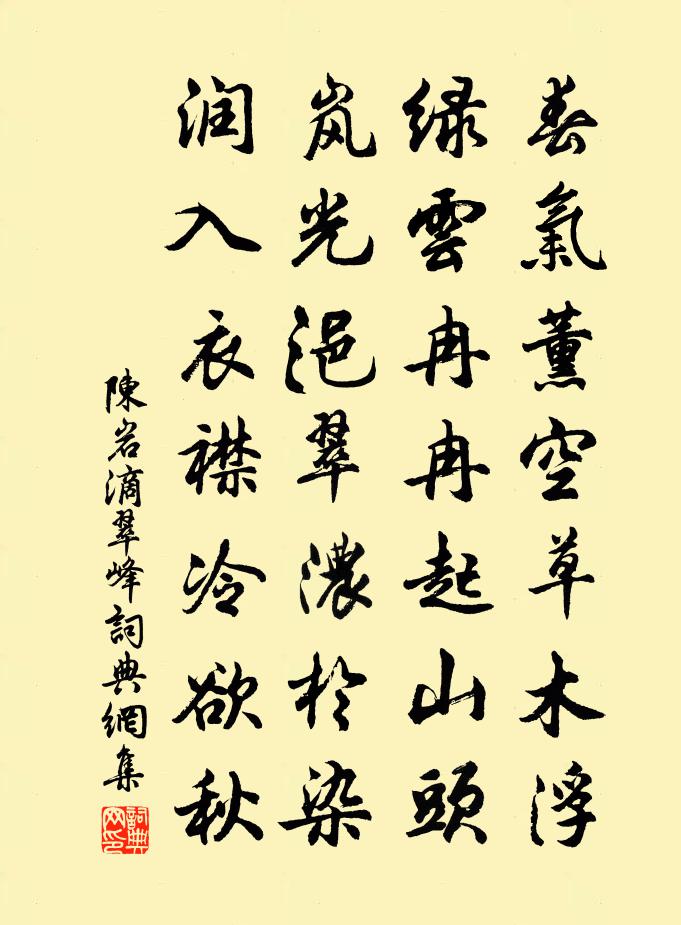 春氣薰空草木浮
绿雲冉冉起山頭
岚光浥翠濃於染
润入衣襟冷欲秋
陳岩滴翠峰詞典網集
詞典网印